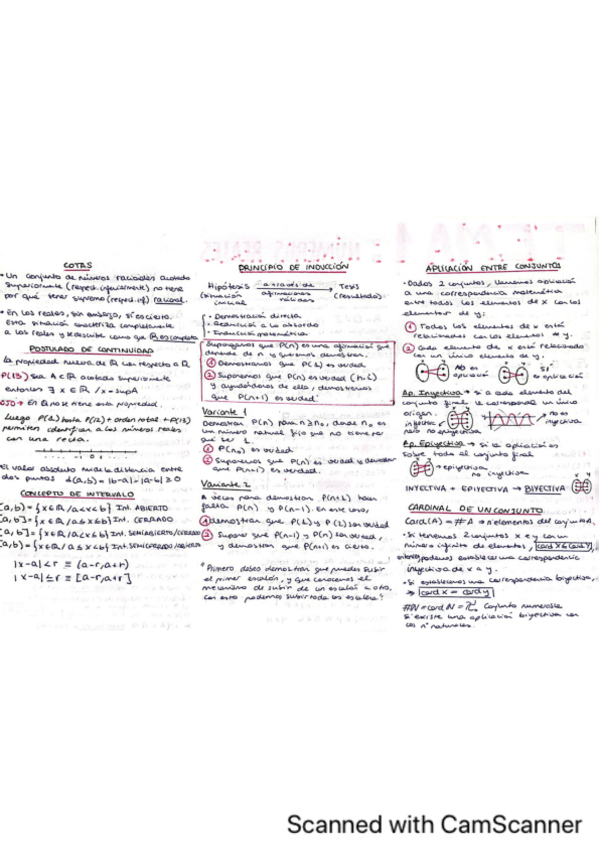 COTAS
• Un conjunto de números racionales acotado
superiormente (respect. inferiormente) no tiene
por qué tener supremo (respect. inf.) racional.
• En los reales, sin embargo, sí es cierto.
Esta situación caracteriza completamente
a los reales y se describe como que R es completo
POSTULADO DE CONTINUIDAD
La propiedad nueva de R con respecto a Q
P(13) Sea A ⊂ R acotado superiormente
entonces ∃ x ∈ R / x = sup A
OJO → En Q no se tiene esta propiedad.
Luego P(1) hasta P(12) + orden total + P(13)
permiten identificar a los números reales
con una recta.
-1 0 1
El valor absoluto mide la distancia entre
dos puntos d(a,b) = |b-a| = |a-b| ≥ 0
CONCEPTO DE INTERVALO
(a,b) = {x ∈ R / a<x<b} Int. ABIERTO
[a,b] = {x ∈ R / a≤x≤b} Int. CERRADO
(a,b] = {x ∈ R / a<x≤b} Int. SEMIABIERTO/CERRADO
[a,b) = {x ∈ R / a≤x<b} Int. SEMICERRADO/ABIERTO
|x-a|<r ≡ (a-r,a+r)
|x-a|≤r ≡ [a-r,a+r]
PRINCIPIO DE INDUCCIÓN
Hipótesis a través de Tesis
(situación afirmaciones (resultado)
inicial válidas
• Demostración directa
• Reducción a lo absurdo
• Inducción matemática
Supongamos que P(n) es una afirmación que
depende de n y queremos demostrar.
① Demostramos que P(1) es verdad
② Suponemos que P(n) es verdad (h.i.)
y ayudándonos de ello, demostramos
que P(n+1) es verdad
Variante 1
Demostrar P(n) para n≥n₀, donde n₀ es
un número natural fijo que no tiene por
qué ser 1.
① P(n₀) es verdad
② Suponemos que P(n) es verdad y
que P(n+1) es verdad.
Variante 2
A veces para demostrar P(n+1) hace
falta P(n) y P(n-1). En este caso,
① demostrar que P(1) y P(2) son verdad
② Supone que P(n-1) y P(n) son verdad,
y demostrar que P(n+1) es cierto.
"Primero debes demostrar que puedes subir
el primer escalón, y que conocemos el
mecanismo de subir de un escalón a otro,
con esto podemos subir toda la escalera"
APLICACIÓN ENTRE CONJUNTOS
• Dados 2 conjuntos, llamamos aplicación
a una correspondencia matemática
entre todos los elementos de x con los
elementos de y.
① Todos los elementos de x están
relacionados con los elementos de y.
② Cada elemento de x está relacionado
con un único elemento de y.
NO es aplicación SÍ es aplicación
Ap. Inyectiva → si a cada elemento del
conjunto final le corresponde un único
origen.
inyectiva no es
pero no epiyectiva inyectiva
Ap. Epiyectiva → si la aplicación es
sobre todo el conjunto final
→ epiyectiva
no inyectiva
INYECTIVA + EPIYECTIVA → BIYECTIVA
CARDINAL DE UN CONJUNTO
Card(A) = #A → nº elementos del conjunto A.
• Si tenemos 2 conjuntos x e y con un
número infinito de elementos, card x ≤ card y,
si podemos establecer una correspondencia
inyectiva de x a y.
• Si establecemos una correspondencia biyectiva,
⇒ card x = card y
#N = card N = conjunto numerable
si existe una aplicación biyectiva con
los nº naturales.
Scanned with CamScanner